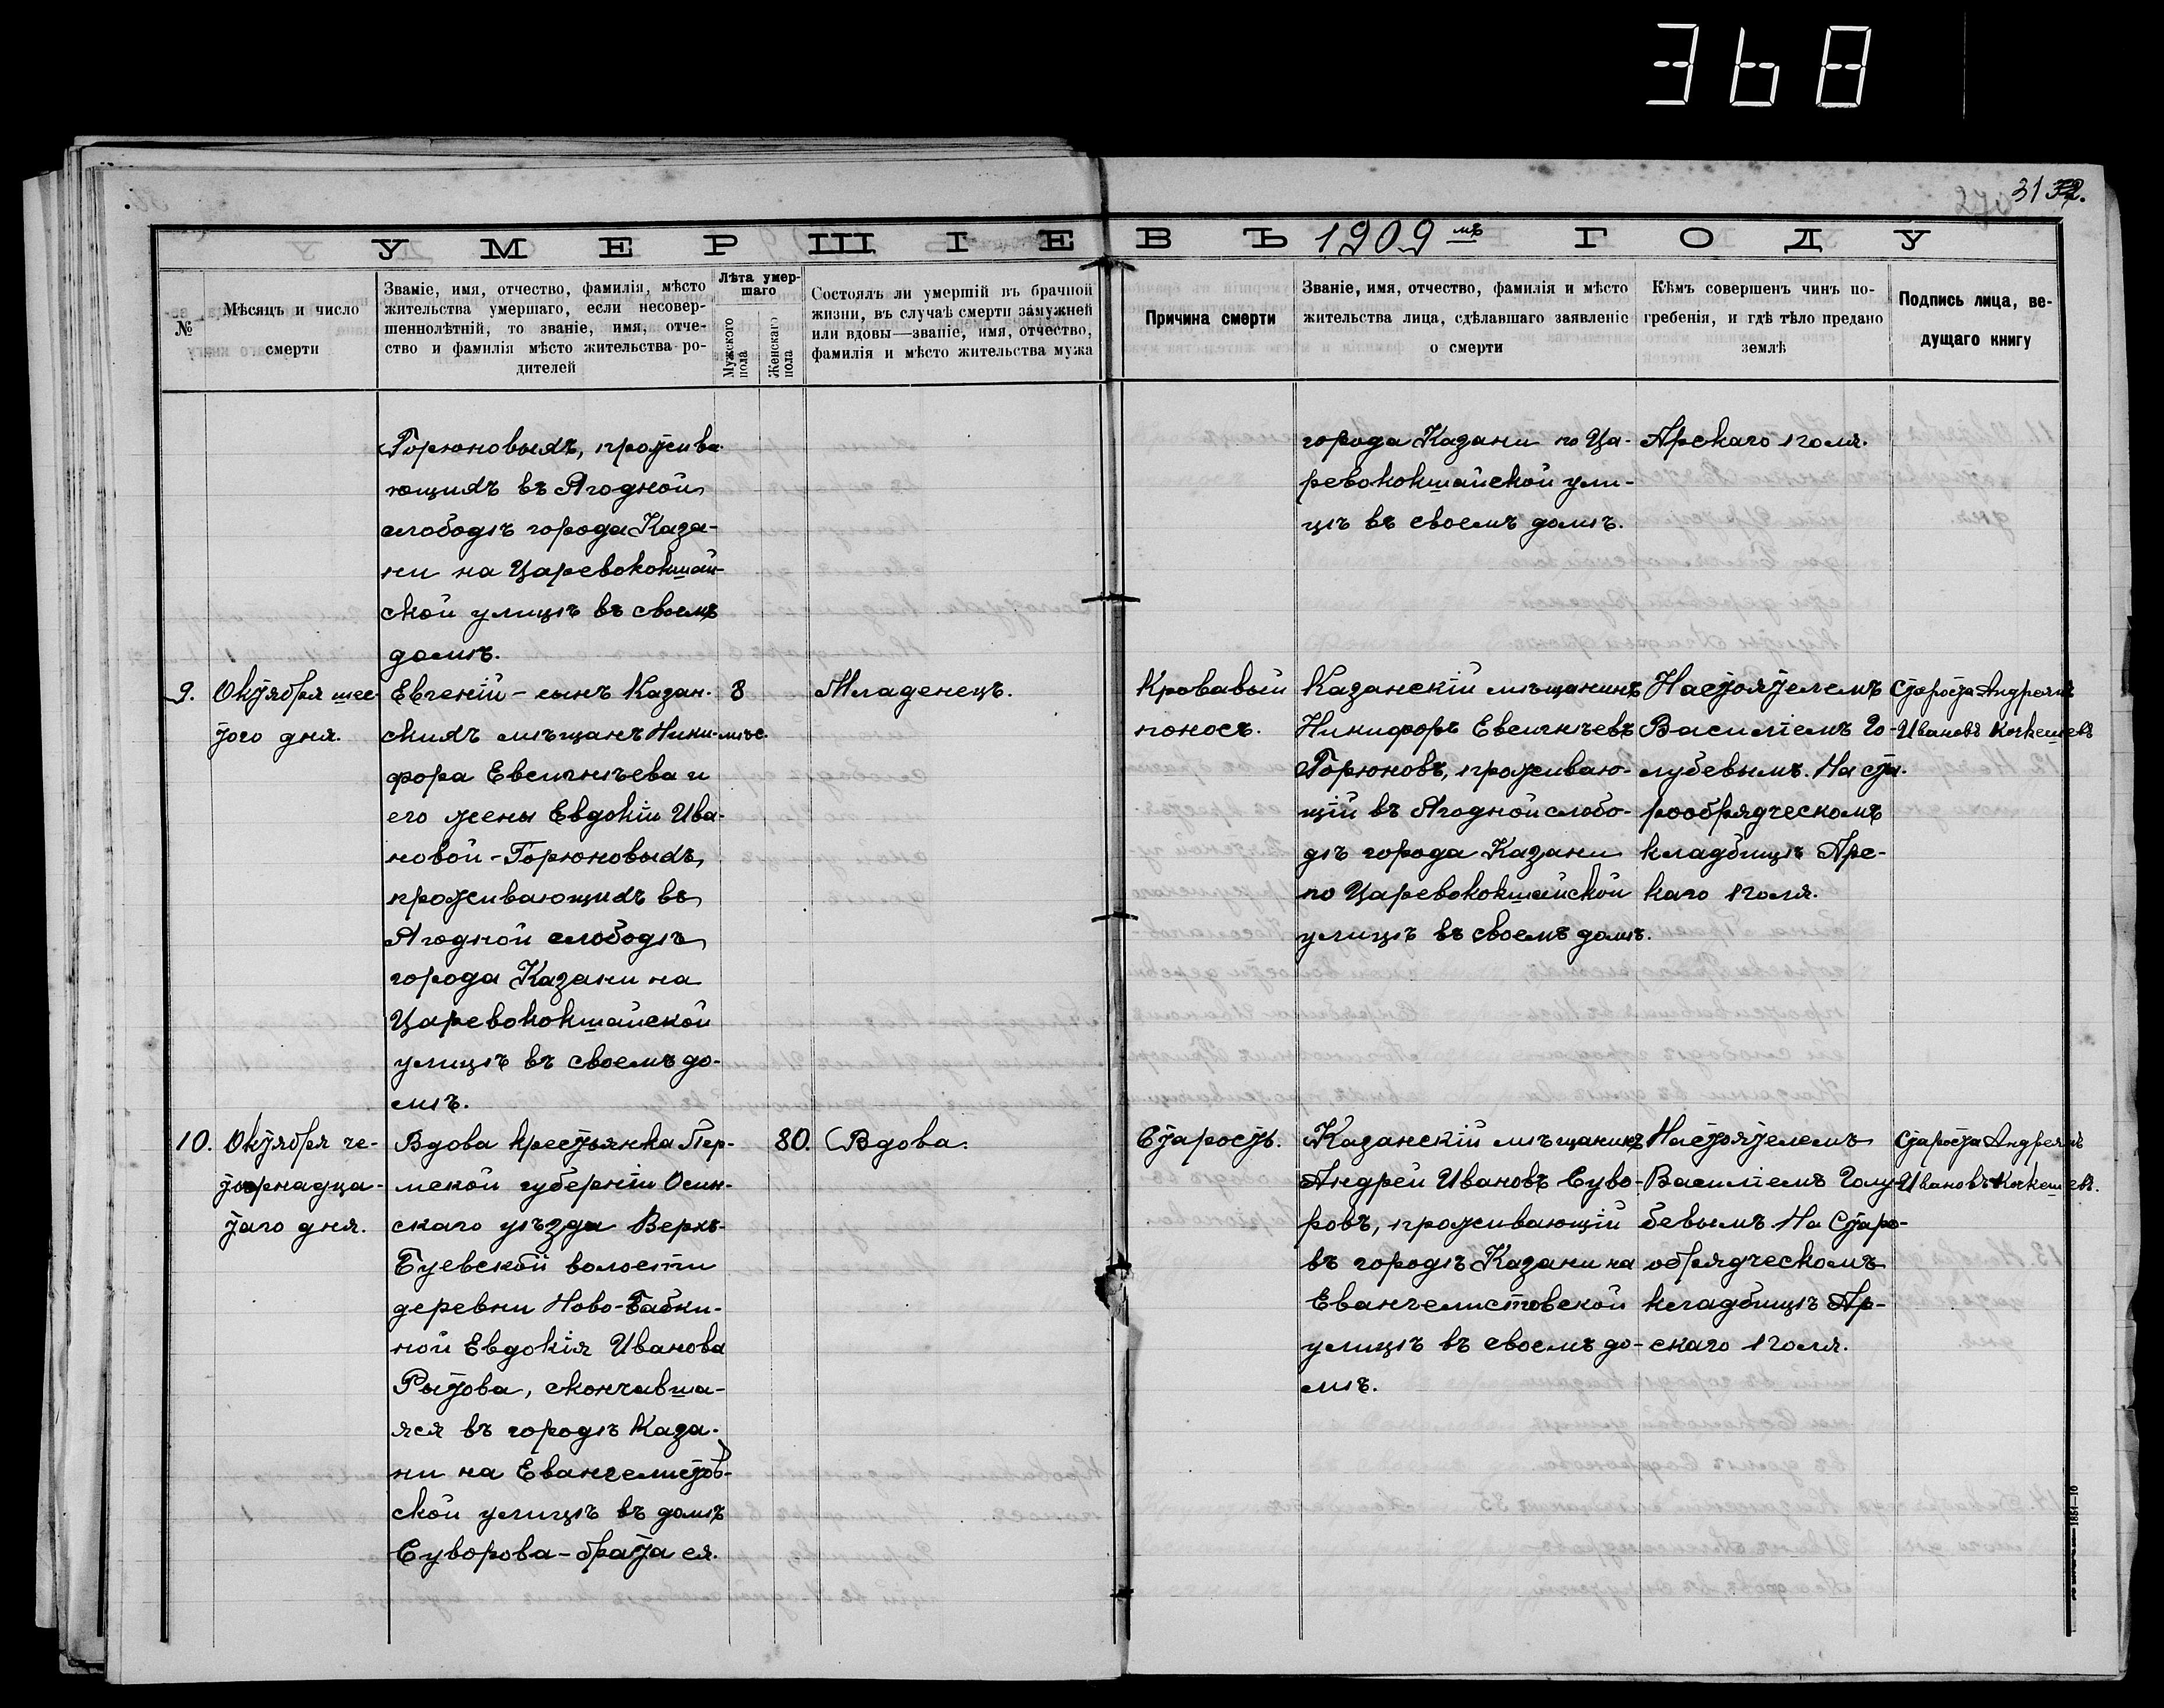 368
270 31 32.
УМЕРШІЕ ВЪ 1909 мъ ГОДУ
№
Мѣсяцъ и число
смерти
Званіе, имя, отчество, фамилія, мѣсто
жительства умершаго, если несовер-
шеннолѣтній, то званіе, имя, отче-
ство и фамилія мѣсто жительства ро-
дителей
Лѣта умер-
шаго
Мужского
пола
Женскаго
пола
Состоялъ ли умершій въ брачной
жизни, въ случаѣ смерти замужней
или вдовы—званіе, имя, отчество,
фамилія и мѣсто жительства мужа
Причина смерти
Званіе, имя, отчество, фамилія и мѣсто
жительства лица, сдѣлавшаго заявленіе
о смерти
Кѣмъ совершенъ чинъ по-
гребенія, и гдѣ тѣло предано
землѣ
Подпись лица, ве-
дущаго книгу
Горюновыхъ, прожива-
ющихъ въ Ягодной
слободѣ города Каза-
ни на Царевококшай-
ской улицѣ въ своемъ
домѣ.
города Казани по Ца-
ревококшайской ули-
цѣ въ своемъ домѣ.
Арскаго поля.
9.
Октября шес-
того дня.
Евгеній - сынъ Казан-
скихъ мѣщанъ Ники-
фора Евсигнѣева и
его жены Евдокіи Ива-
новой - Горюновыхъ,
проживающихъ въ
Ягодной слободѣ
города Казани на
Царевококшайской
улицѣ въ своемъ до-
мѣ.
8
мѣс.
Младенецъ.
Кровавый
поносъ.
Казанскій мѣщанинъ
Никифоръ Евсигнѣевъ
Горюновъ, проживаю-
щій въ Ягодной слобо-
дѣ города Казани
по Царевококшайской
улицѣ въ своемъ домѣ.
Настоятелемъ
Василіемъ Го-
лубевымъ. На ста-
рообрядческомъ
кладбищѣ Арс-
каго поля.
Староста Андреянъ
Ивановъ Коккешевъ
10.
Октября че-
тырнадца-
таго дня.
Вдова крестьянка Пер-
мской губерніи Осин-
скаго уѣзда Верхъ-
Буевской волости
деревни Ново-Бабки-
ной Евдокія Иванова
Рытова, скончавша-
яся въ городѣ Каза-
ни на Евангелистов-
ской улицѣ въ домѣ
Суворова - брата ея.
80.
Вдова.
Старость.
Казанскій мѣщанинъ
Андрей Ивановъ Суво-
ровъ, проживающій
въ городѣ Казани на
Евангелистовской
улицѣ въ своемъ до-
мѣ.
Настоятелемъ
Василіемъ Голу-
бевымъ На Старо-
обрядческомъ
кладбищѣ Ар-
скаго поля.
Староста Андреянъ
Ивановъ Коккешевъ.